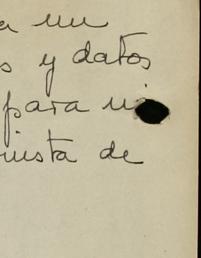 a un
s y datos
para
ista de